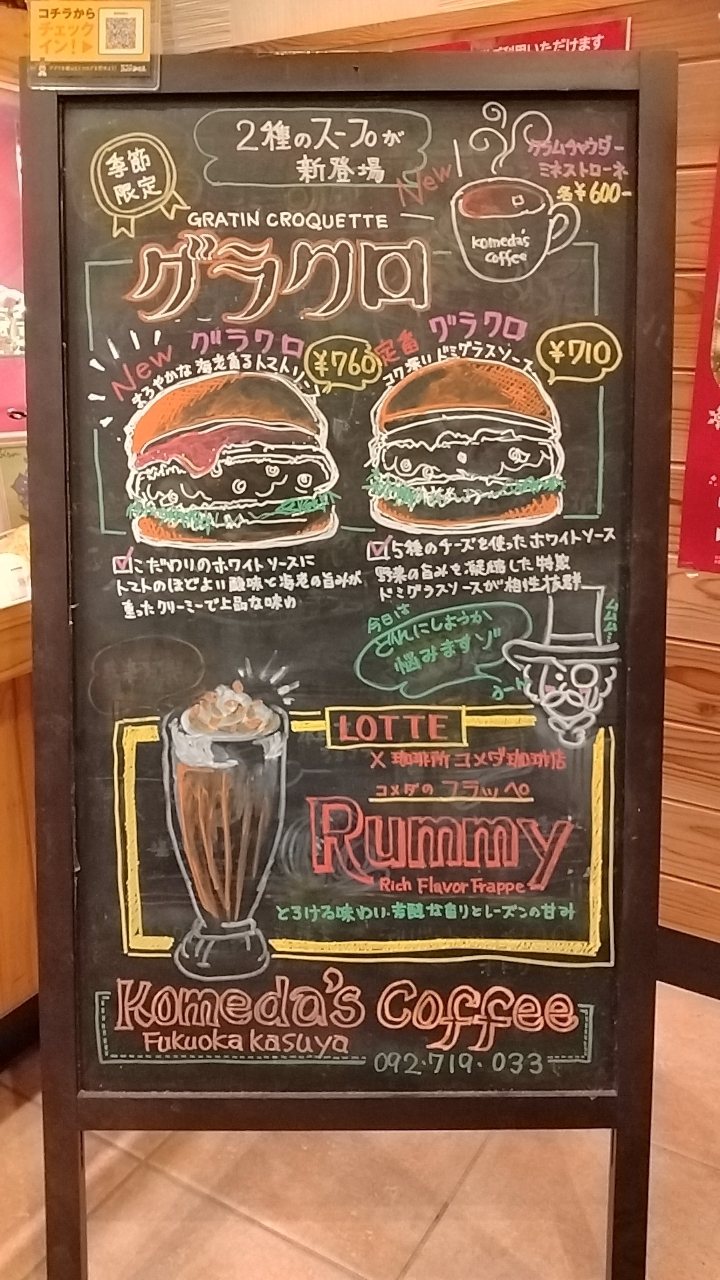 コチラから
チェック
イン！▶
ご利用いただけます
季節
限定
2種のスープが
新登場
New
クラムチャウダー
ミネストローネ
各¥600-
komeda's
coffee
GRATIN CROQUETTE
グラクロ
New グラクロ
まろやかな海老香るトマトソース
¥760
定番 グラクロ
コク深いドミグラスソース
¥710
こだわりのホワイトソースに
トマトのほどよい酸味と海老の旨みが
重ったクリーミーで上品な味わ
5種のチーズを使ったホワイトソース
野菜の旨みを凝縮した特製
ドミグラスソースが相性抜群
今日は
どれにしようか
悩みますゾ
LOTTE
X 珈琲所コメダ珈琲店
コメダの フラッペ
Rummy
Rich Flavor Frappe
とろける味わい・芳醇な香りとレーズンの甘み
Komeda's Coffee
Fukuoka kasuya
092・719・033